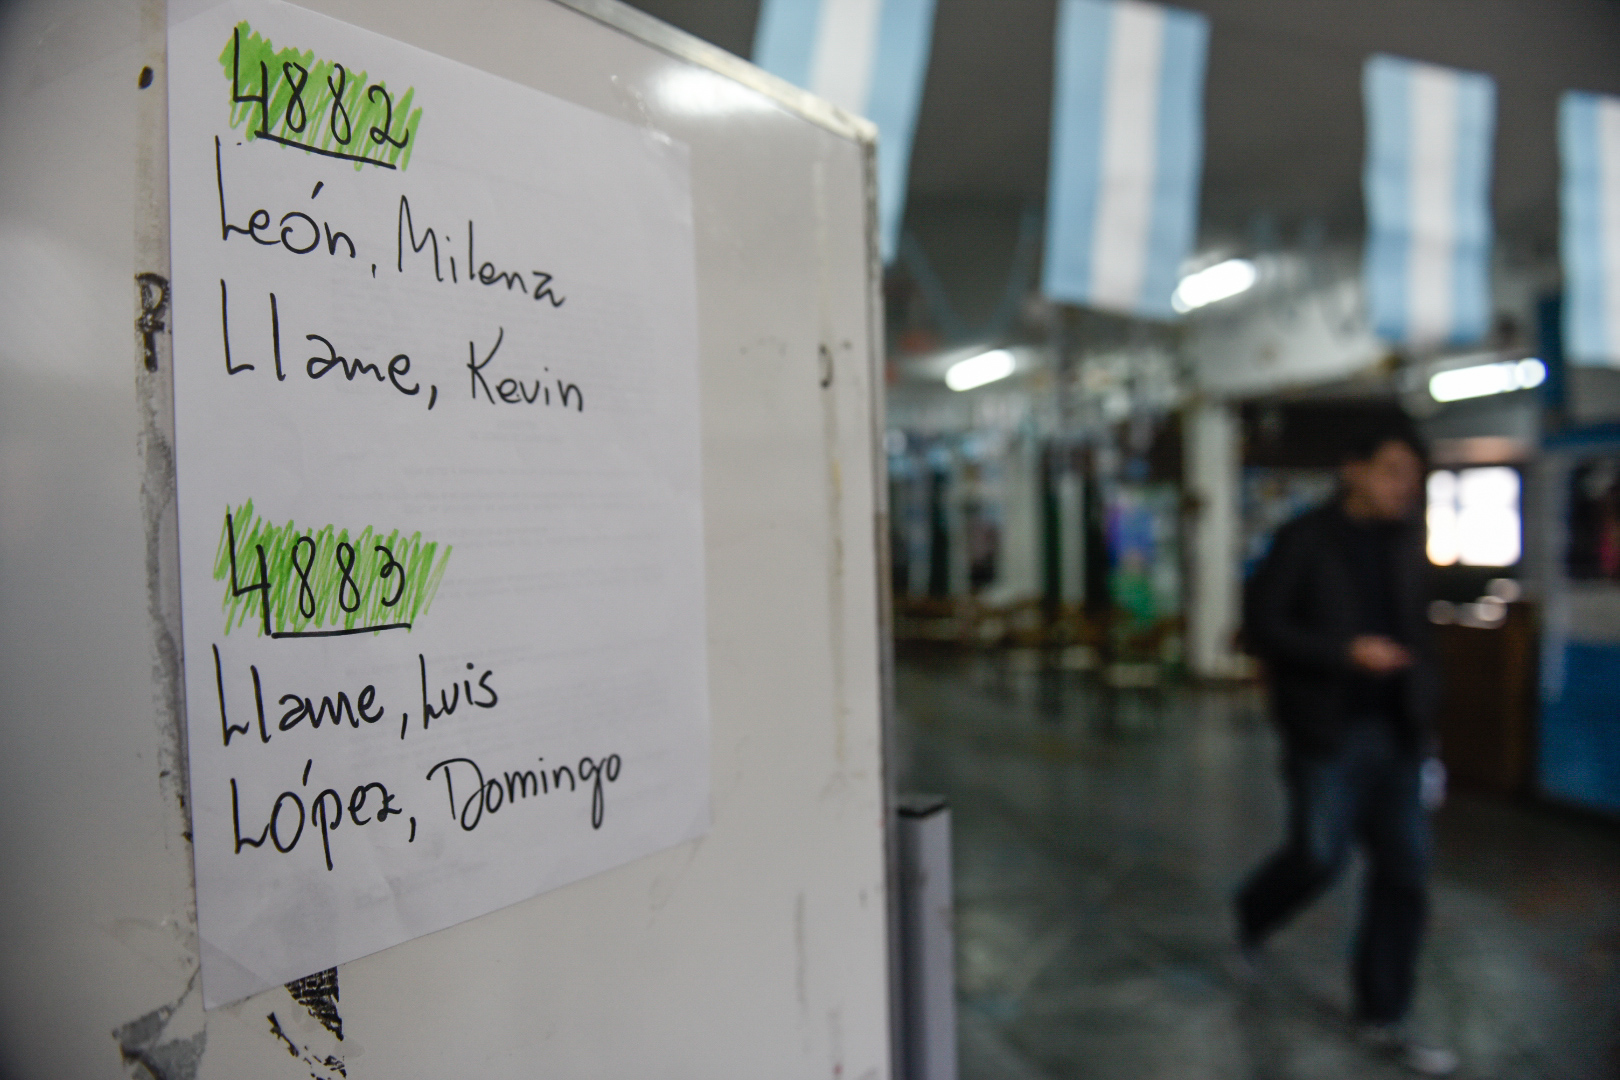 4882
León, Milena
Llame, Kevin
4883
Llame, Luis
López, Domingo